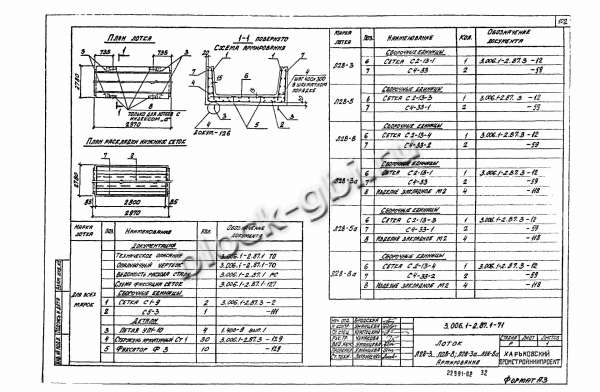 62
План лотка
1-1 повернуто
Схема армирования
735
735
2780
2970
только для лотков с индексом „а"
Шаг 400×300 в шахматном порядке
Докум.-126
План раскладки нижних сеток
2780
85
2800
85
2970
Марка лотка
Поз.
Наименование
Кол.
Обозначение документа
Документация
Техническое описание 3.006.1-2.87.1 ТО
Опалубочный чертеж
Ведомость расхода стали 3.006.1-2.87.1 РС
Схема фиксации сеток 3.006.1-2.87.1-127
Сборочные единицы
Для всех марок
1 Сетка С1-9 2 3.006.1-2.87.3-2
2 С5-3 1 -111
Детали
3 Петля УП1-10 4 1.400-9 вып. 1
4 Стержень арматурный Ст 1 30 3.006.1-2.87.3-129
5 Фиксатор Ф 3 10 -128
Марка лотка
Поз.
Наименование
Кол.
Обозначение документа
Сборочные единицы
Л28-3 6 Сетка С2-13-1 1 3.006.1-2.87.3-12
7 С4-33 2 -99
Сборочные единицы
Л28-5 6 Сетка С2-13-3 1 3.006.1-2.87.3-12
7 С4-33-1 2 -99
Сборочные единицы
Л28-8 6 Сетка С2-13-4 1 3.006.1-2.87.3-12
7 С4-33-2 2 -99
Сборочные единицы
Л28-3а 6 Сетка С2-13-1 1 3.006.1-2.87.3-12
7 С4-33 2 -99
8 Изделие закладное М2 4 -118
Сборочные единицы
Л28-5а 6 Сетка С2-13-3 1 3.006.1-2.87.3-12
7 С4-33-1 2 -99
8 Изделие закладное М2 4 -118
Сборочные единицы
Л28-8а 6 Сетка С2-13-4 1 3.006.1-2.87.3-12
7 С4-33-2 2 -99
8 Изделие закладное М2 4 -118
3.006.1-2.87.1-71
Лоток
Л28-3...Л28-8; Л28-3а...Л28-8а
Армирование
Стадия Лист Листов
Р 1
Харьковский
Промстройниипроект
22991-02 72
Формат А3
block-gbi.ru